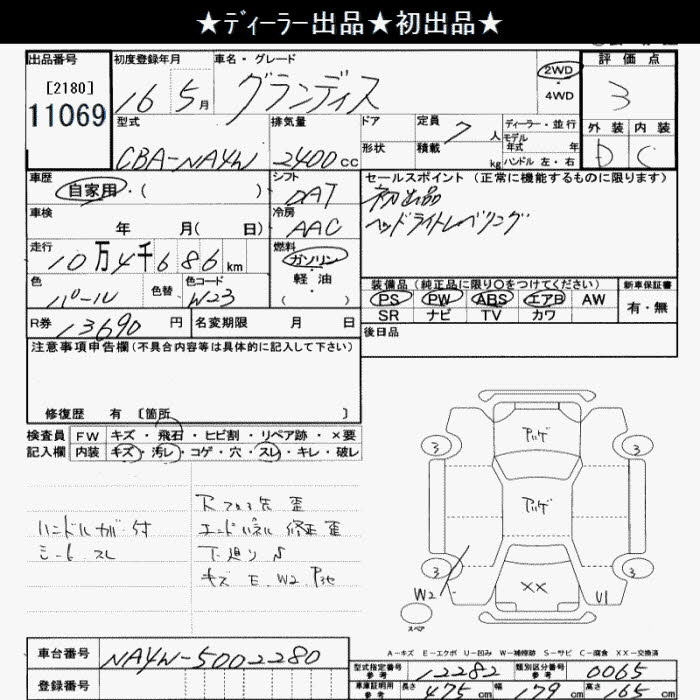 ★ディーラー出品★初出品★
出品番号
[2180]
11069
初度登録年月
16 5月
車名・グレード
グランディス
2WD
・
4WD
評価点
3
外装 内装
D C
型式
CBA-NA4W
排気量
2400cc
ドア
形状
定員 7人
積載 kg
ディーラー・並行
モデル
年式 年
ハンドル 左・右
車歴
自家用・( )
シフト
DAT
セールスポイント(正常に機能するものに限ります)
初出品
ヘッドライトレベリング
車検
年 月( 日)
冷房
AAC
走行
10万4千686km
燃料
ガソリン
・
軽油
( )
色
パール
色替
色コード
W23
装備品(純正品に限り〇をつけてください)
PS PW ABS エアB AW
SR ナビ TV カワ
新車保証書
有・無
R券 13690円
名変期限 月 日
後日品
注意事項申告欄(不具合内容等は具体的に記入して下さい)
修復歴 有 [箇所 ]
検査員
記入欄
FW キズ・飛石・ヒビ割・リペア跡・×要
内装 キズ・汚レ・コゲ・穴・スレ・キレ・破レ
ハンドル
シート スレ
エンドパネル 修正 歪
下廻り S
キズ E W2
アゲ
アゲ
3 3
3 3
XX
W2
U1
スペア
A-キズ E-エクボ U-凹み W-補修跡 S-サビ C-腐食 XX-交換済
車台番号 NA4W-5002280
登録番号
型式指定番号
参考
12282
類別区分番号
参考
0065
車庫証明用
参考
長さ 475cm 幅 179cm 高さ 165cm